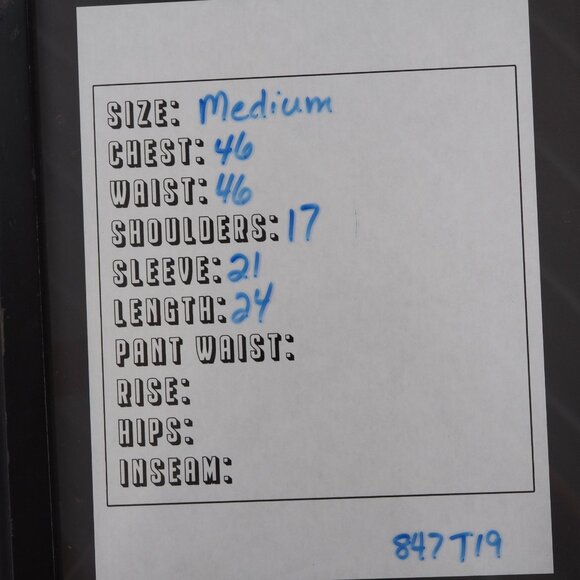 SIZE: Medium
CHEST: 46
WAIST: 46
SHOULDERS: 17
SLEEVE: 21
LENGTH: 24
PANT WAIST:
RISE:
HIPS:
INSEAM:
847T19